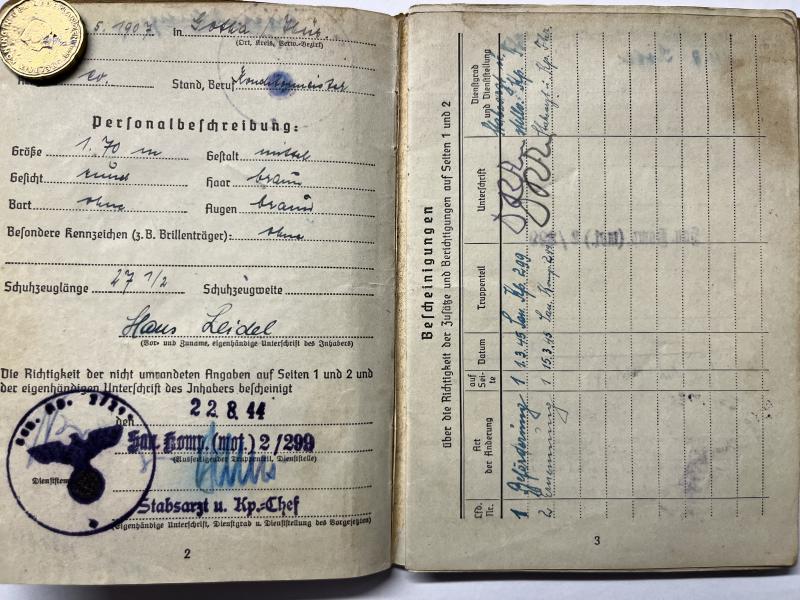 5. 1907 in Gotha
(Ort, Kreis, Verw.-Bezirk)
ev. Stand, Beruf Konditormeister
Personalbeschreibung:
Größe 1.70 m Gestalt mittel
Gesicht rund Haar braun
Bart ohne Augen braun
Besondere Kennzeichen (z.B. Brillenträger): ohne
Schuhzeuglänge 27 1/2 Schuhzeugweite
Hans Leidel
(Vor- und Zuname, eigenhändige Unterschrift des Inhabers)
Die Richtigkeit der nicht umrandeten Angaben auf Seiten 1 und 2 und
der eigenhändigen Unterschrift des Inhabers bescheinigt
den 22.8.44
San. Komp. (mot.) 2/299
(Ausfertigender Truppenteil, Dienststelle)
Stabsarzt u. Kp.-Chef
(Eigenhändige Unterschrift, Dienstgrad u. Dienststellung des Vorgesetzten)
2
Bescheinigungen
über die Richtigkeit der Zusätze und Berichtigungen auf Seiten 1 und 2
Lfd. Nr. Art der Änderung auf Seite Datum Truppenteil Unterschrift Dienstgrad und Dienststellung
1 Beförderung 1 1.3.45 San. Kp. 299
2 1 15.3.45 San. Komp. 299
San. Komp. (mot.) 2/299
3